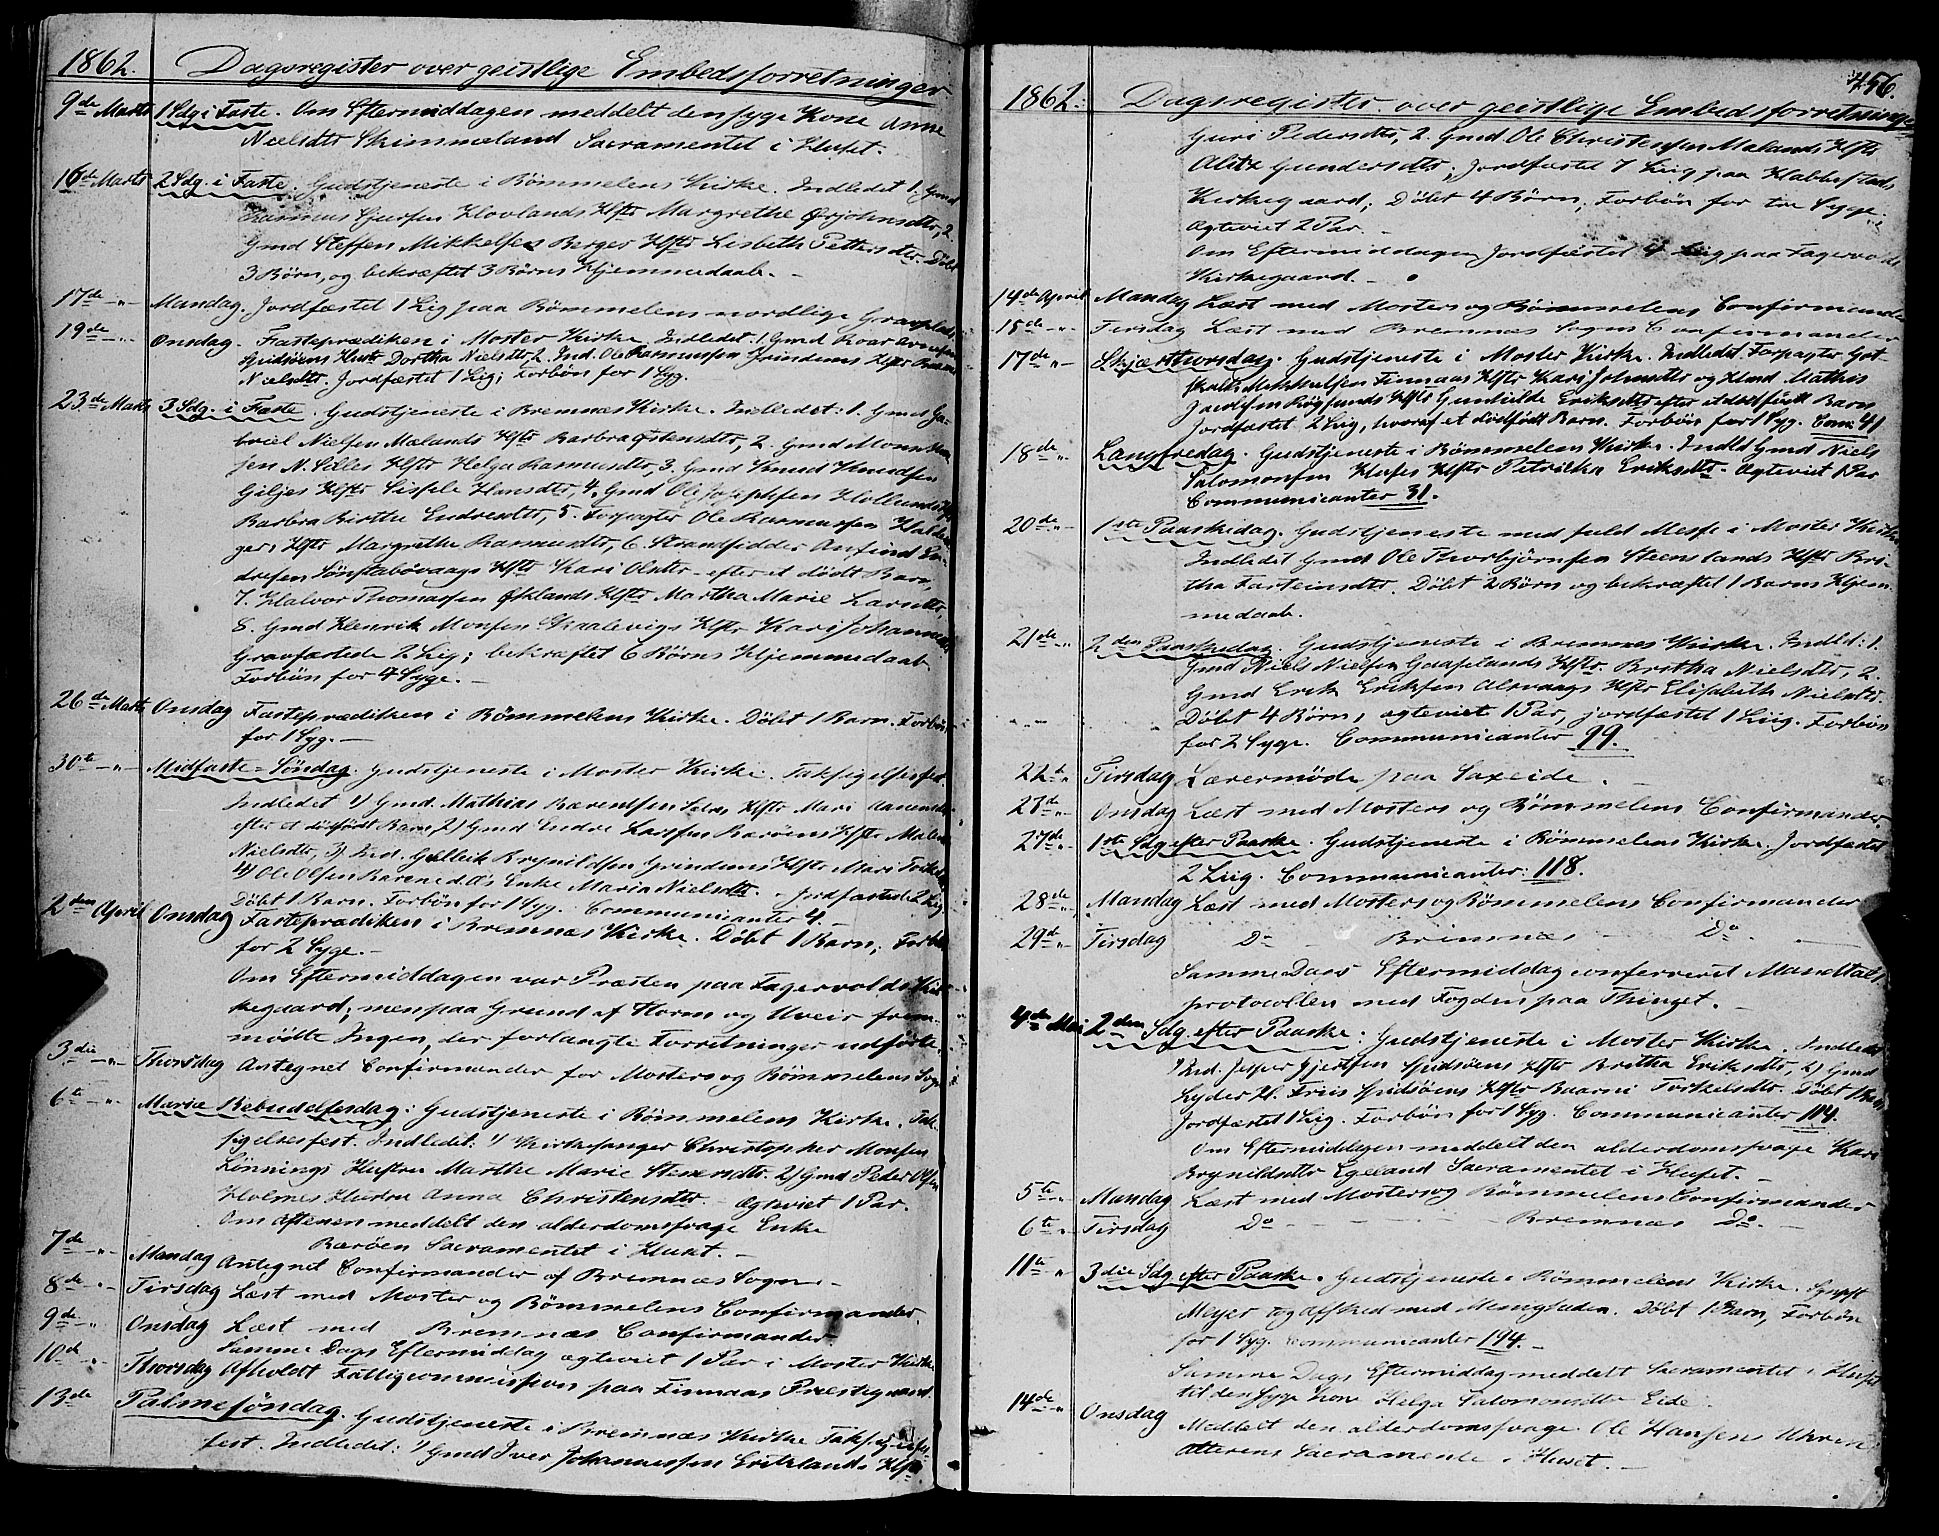 1862. Dagsregister over geistlige Embedsforretninger
9de Marts 1 Sdg i Faste. Om Eftermiddagen meddelt den syge Kone Anne
Nielsdtr Skimmeland Sacramentet i Huset.
16de Marts 2 Sdg. i Faste. Gudstjeneste i Bømmelens Kirke. Indledet 1. Gmd
Rasmus Hovlands Hstr Margrethe Ørjohnsdtr, 2.
Gmd Steffen Mikkelsen Berger Hstr Lisbeth Pettersdtr. Døbt
3 Børn, og bekræftet 3 Børns Hjemmedaab. -
17de -"- Mandag. Jordfæstet 1 Lig paa Bømmelens nordlige Gravplads.
19de -"- Onsdag. Fasteprædiken i Moster Kirke. Indledet: 1. Gmd Roar
Hustr Dortha Nielsdtr, 2. Ind. Ole Rasmussen Grindens Hstr
Nielsdtr. Jordfæstet 1 Lig; Forbøn for 1 Syg.
23de Marts 3 Sdg. i Faste. Gudstjeneste i Bremnæs Kirke. Indledet: 1. Gmd Ga-
briel Nielsen Mælands Hstr Barbra Østensdtr, 2. Gmd Mons
N. Selles Hstr Helga Rasmusdtr, 3. Gmd Knud Knudsen
Giljes Hstr Sissele Hansdtr, 4. Gmd Ole Josephsen Hollunds
Barbra Birthe Endresdtr, 5. Forpagter Ole Rasmussen
ger, Hstr Margrethe Rasmusdtr, 6. Strandsidder Anfind En-
dresen Sønstabøvaags Hstr Kari Olsdtr - efter et dødt Barn,
7. Halvor Thomassen Øklands Hstr Martha Marie Larsdtr,
8. Gmd Henrik Monsen Skaalevigs Hstr Kari Johannes
Gravfæstede 2 Lig; bekræftet 6 Børns Hjemmedaab
Forbøn for 4 Syge. -
26de Marts Onsdag Fasteprædiken i Bømmelens Kirke. Døbt 1 Barn. Forbøn
for 1 Syg. -
30te -"- Midfaste-Søndag. Gudstjeneste i Moster Kirke. Taksigelsesfest.
Indledet 1) Gmd. Mathias Bærentsen Selas Hstr Mari
efter et dødfødt Barn, 2) Gmd Endre Larssen Barøens Hstr Malene
Nielsdtr, 3) Ind. Gullik Brynildsen Grindens Hstr Mari
4) Ole Olsen Barene d.æ's Enke Maria Nielsdtr. - Jordfæstet 2 Lig.
Døbt 1 Barn. Forbøn for 1 Syg. Communicanter 4.
2den April Onsdag Fasteprædiken i Bremnæs Kirke. Døbt 1 Barn; Forbøn
for 2 Syge. -
Om Eftermiddagen var Præsten paa Fagervolds Kir-
kegaard; men paa Grund af Storm og Uveir frem-
mødte Ingen, der forlangte Forretninger udførte.
3die -"- Thorsdag Antegnet Confirmander for Mosters og Bømmelens Sogn
6te -"- Mariæ Bebudelsesdag: Gudstjeneste i Bømmelens Kirke. Tak-
sigelsesfest. Indledet: 1) Kirkesanger Christopher Monsen
Lønnings Hustru Marthe Marie Stenersdtr. 2) Gmd Peder Olsen
Holmes Hustru Anna Christensdtr. - Ægteviet 1 Par.
Om Aftenen meddelt den alderdomssvage Enke
Barøen Sacramentet i Huset. -
7de -"- Mandag Antegnet Confirmander af Bremnæs Sogn. -
8de -"- Tirsdag Læst med Moster og Bømmelens Confirmander.
9de -"- Onsdag Læst med Bremnæs Confirmander
Samme Dags Eftermiddag ægteviet 1 Par i Moster Kirke
10de -"- Thorsdag Afholdt Fattigcommission paa Finnaas Præstegaard.
13de Palmesøndag. Gudstjeneste i Bremnæs Kirke Taksigelses-
fest. Indledet: 1) Gmd Iver Johannessen Hstr
456.
1862. Dagsregister over geistlige Embedsforretninger
Guri Pedersdtr, 2. Gmd Ole Christensen Mælands Hstr
Alite Gundersdtr; Jordfæstet 7 Liig paa
Kirkegaard; Døbt 4 Børn; Forbøn for tre Syge;
Ægteviet 2 Par. -
Om Eftermiddagen Jordfæstet 4 Liig paa Fagervolds
Kirkegaard. -
14de April Mandag Læst med Mosters og Bømmelens Confirmander
15de -"- Tirsdag Læst med Bremnæs Sogns Confirmander
17de -"- Skjærthorsdag. Gudstjeneste i Moster Kirke. Indledet Forpagter Got-
skalk Mikkelsen Finnaas Hstr Kari Johnsdtr og Hmd Mathis
Jacobsen Røgsunds Hstr Gunhilde Eriksdtr efter et dødfødt Barn
Jordfæstet 2 Liig, hvoraf et dødfødt Barn. Forbøn for 1 Syg. Com: 41
18de -"- Langfredag. Gudstjeneste i Bømmelens Kirke. Indld Gmd Niels
Salomonsen Huses Hstr Petricka Eriksdtr. Ægteviet 1 Par
Communicanter 31.
20de -"- 1ste Paaskedag. Gudstjeneste med fuld Messe i Moster Kirke
Indledet Gmd Ole Thorbjørnsen Steenslands Hstr Bri-
tha Fasteinsdtr. Døbt 2 Børn og bekræftet 1 Barns Hjem-
medaab.
21de -"- 2den Paaskedag. Gudstjeneste i Bremnes Kirke. Indld: 1.
Gmd Niels Nielsen Gaaselands Hstr. Britha Nielsdtr, 2.
Gmd Erik Eriksen Alsvaags Hstr Elisabeth Nielsdtr.
Døbt 4 Børn, ægteviet 1 Par, jordfæstet 1 Liig. Forbøn
for 2 Syge. Communicanter 99.
22de -"- Tirsdag Lærermøde paa Saxeide. -
23de -"- Onsdag Læst med Mosters og Bømmelens Confirmander.
27de -"- 1ste Sdg efter Paaske. Gudstjeneste i Bømmelens Kirke. Jordfæstet
2 Liig. Communicanter: 118.
28de -"- Mandag Læst med Mosters og Bømmelens Confirmander
29de -"- Tirsdag Do - Brimnæs - Do. -
Samme Dags Eftermiddag confereret Mandtals-
protocollen med Fogden paa Thinget. -
4de Mai 2den Sdg efter Paaske: Gudstjeneste i Moster Kirke. Indledet
1) Ind. Jesper Gjertsen Hstr Britha Eriksdtr, 2) Gmd
Lyder H. Friis Hstr Baarni Torkelsdtr. Døbt 1 Barn
Jordfæstet 1 Liig. Forbøn for 1 Syg. Communicanter 114.
Om Eftermiddagen meddelt den alderdomssvage Kari
Brynildsdtr Egeland Sacramentet i Huset. -
5te -"- Mandag Læst med Mosters og Bømmelens Confirmander
6te -"- Tirsdag Do - - - - - Bremnæs Do. -
11te -"- 3die Sdg efter Paaske. Gudstjeneste i Bømmelens Kirke.
Meyer og Afsked med Menigheden. Døbt 1 Barn, Forbøn
for 1 Syg. Communicanter 194. -
Samme Dags Eftermiddag meddelt Sacramentet i Huset
til den syge Kone Helga Salomonsdtr Eide.
14de -"- Onsdag Meddelt den alderdomssvage Ole Hansens
Sacramente i Huset. -